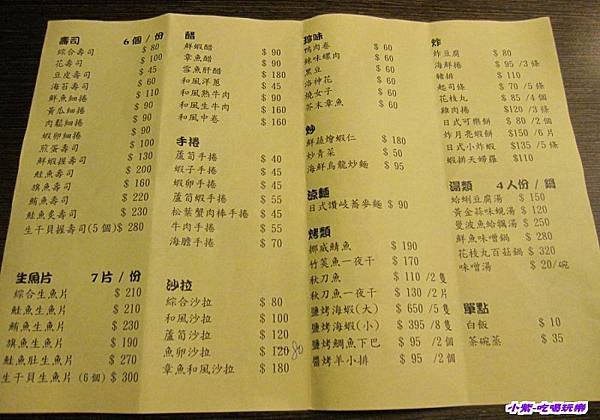 壽司 6個/份
綜合壽司 $ 80
花壽司 $ 100
豆皮壽司 $ 45
海苔壽司 $ 60
鮮魚細捲 $ 110
黃瓜細捲 $ 90
肉鬆細捲 $ 90
蝦卵細捲 $ 90
煎蛋壽司 $ 100
鮮蝦握壽司 $ 130
鮭魚壽司 $ 200
旗魚壽司 $ 160
鮪魚壽司 $ 220
鮭魚炙壽司 $ 230
生干貝握壽司(5個) $ 280
生魚片 7片/份
綜合生魚片 $ 210
鮭魚生魚片 $ 210
鮪魚生魚片 $ 230
旗魚生魚片 $ 190
鮭魚肚生魚片 $ 270
生干貝生魚片 (6個) $ 300
醋
鮮蝦醋 $ 90
章魚醋 $ 90
雪魚肝醋 $ 180
和風洋蔥 $ 45
和風熟牛肉 $ 90
和風生牛肉 $ 160
和風中卷 $ 160
手捲
蘆筍手捲 $ 40
蝦子手捲 $ 45
蝦卵手捲 $ 45
蘆筍蝦手捲 $ 55
松葉蟹肉棒手捲 $ 45
牛肉手捲 $ 55
海膽手捲 $ 70
沙拉
綜合沙拉 $ 80
和風沙拉 $ 100
蘆筍沙拉 $ 120
魚卵沙拉 $ 120 80
章魚和風沙拉 $ 180
珍味
鴨肉卷 $ 60
辣味螺肉 $ 60
黑豆 $ 60
洛神花 $ 60
燒女子 $ 60
芥末章魚 $ 60
炒
鮮蔬燴蝦仁 $ 180
炒青菜 $ 50
海鮮烏龍炒麵 $ 95
涼麵
日式讚岐蕎麥麵 $ 90
烤類
挪威鯖魚 $ 190
竹筴魚一夜干 $ 170
秋刀魚 $ 110 /2隻
秋刀魚一夜干 $ 130 /2片
鹽烤海蝦(大) $ 650 /5隻
鹽烤海蝦(小) $ 395 /8隻
鹽烤鯛魚下巴 $ 95 /2個
醬烤羊小排 $ 95 /2個
炸
炸豆腐 $ 80
海鮮捲 $ 95 /3條
豬排 $ 110
起司條 $ 70 /5條
花枝丸 $ 85 /4個
雞肉捲 $120 /3條
日式可樂餅 $ 80 /2個
炸月亮蝦餅 $150 /6片
日式小炸蝦 $135 /5條
蝦排天婦羅 $110
湯類 4人份/鍋
蛤蜊豆腐湯 $ 150
黃金蒜味蜆湯 $ 120
曼波魚蛤蠣湯 $ 500
鮮魚味噌鍋 $ 280
花枝丸百菇鍋 $ 320
味噌湯 $ 20/碗
單點
白飯 $ 10
茶碗蒸 $ 35
小紫-吃喝玩樂